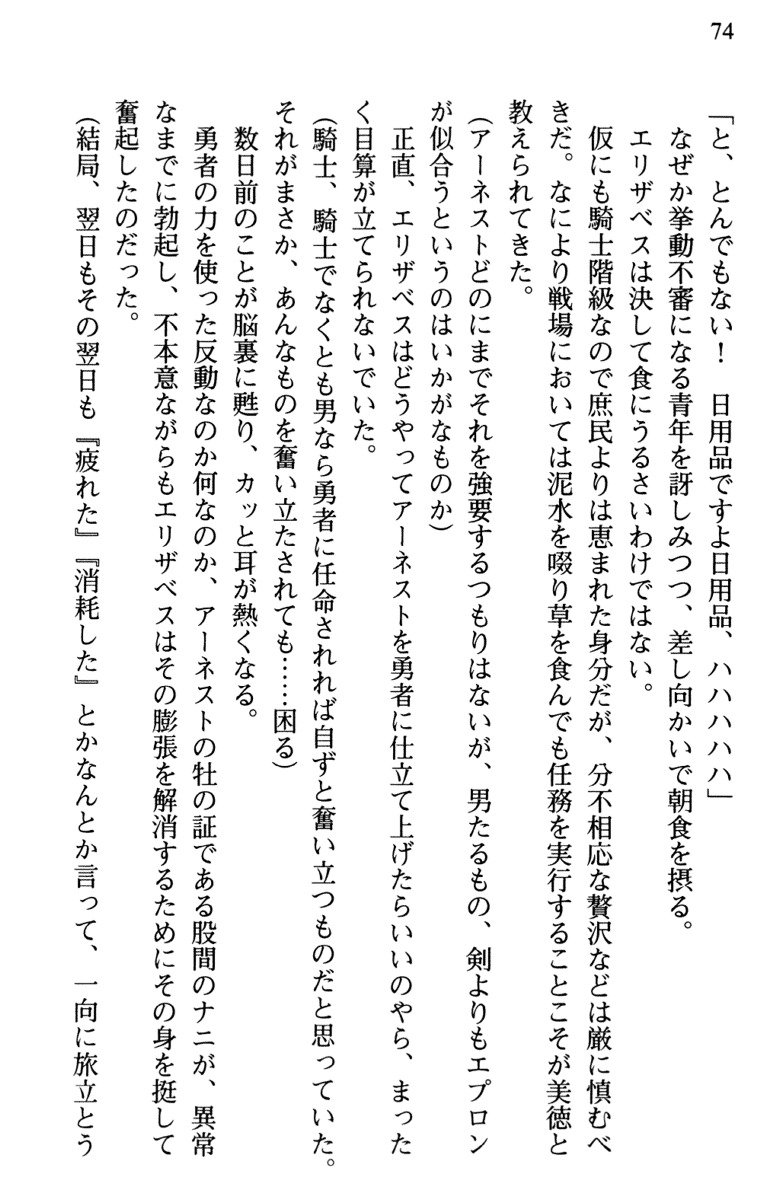 74
「と、とんでもない！　日用品ですよ日用品、ハハハハハ」
　なぜか挙動不審になる青年を訝しみつつ、差し向かいで朝食を摂る。
　エリザベスは決して食にうるさいわけではない。
　仮にも騎士階級なので庶民よりは恵まれた身分だが、分不相応な贅沢などは厳に慎むべ
きだ。なにより戦場においては泥水を啜り草を食んでも任務を実行することこそが美徳と
教えられてきた。
（アーネストどのにまでそれを強要するつもりはないが、男たるもの、剣よりもエプロン
が似合うというのはいかがなものか）
　正直、エリザベスはどうやってアーネストを勇者に仕立て上げたらいいのやら、まった
く目算が立てられないでいた。
（騎士、騎士でなくとも男なら勇者に任命されれば自ずと奮い立つものだと思っていた。
それがまさか、あんなものを奮い立たされても……困る）
　数日前のことが脳裏に甦り、カッと耳が熱くなる。
　勇者の力を使った反動なのか何なのか、アーネストの牡の証である股間のナニが、異常
なまでに勃起し、不本意ながらもエリザベスはその膨張を解消するためにその身を挺して
奮起したのだった。
（結局、翌日もその翌日も『疲れた』『消耗した』とかなんとか言って、一向に旅立とう